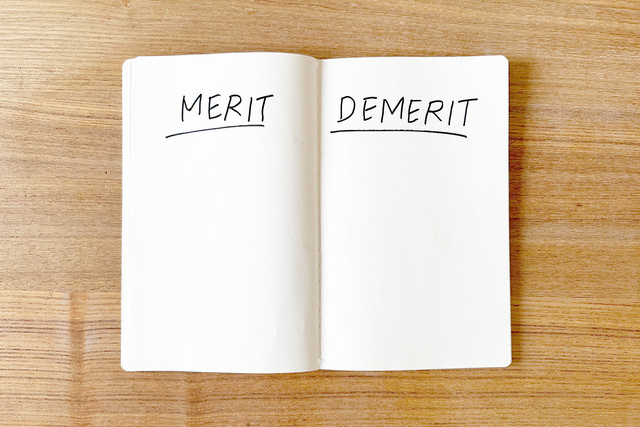 MERIT
DEMERIT